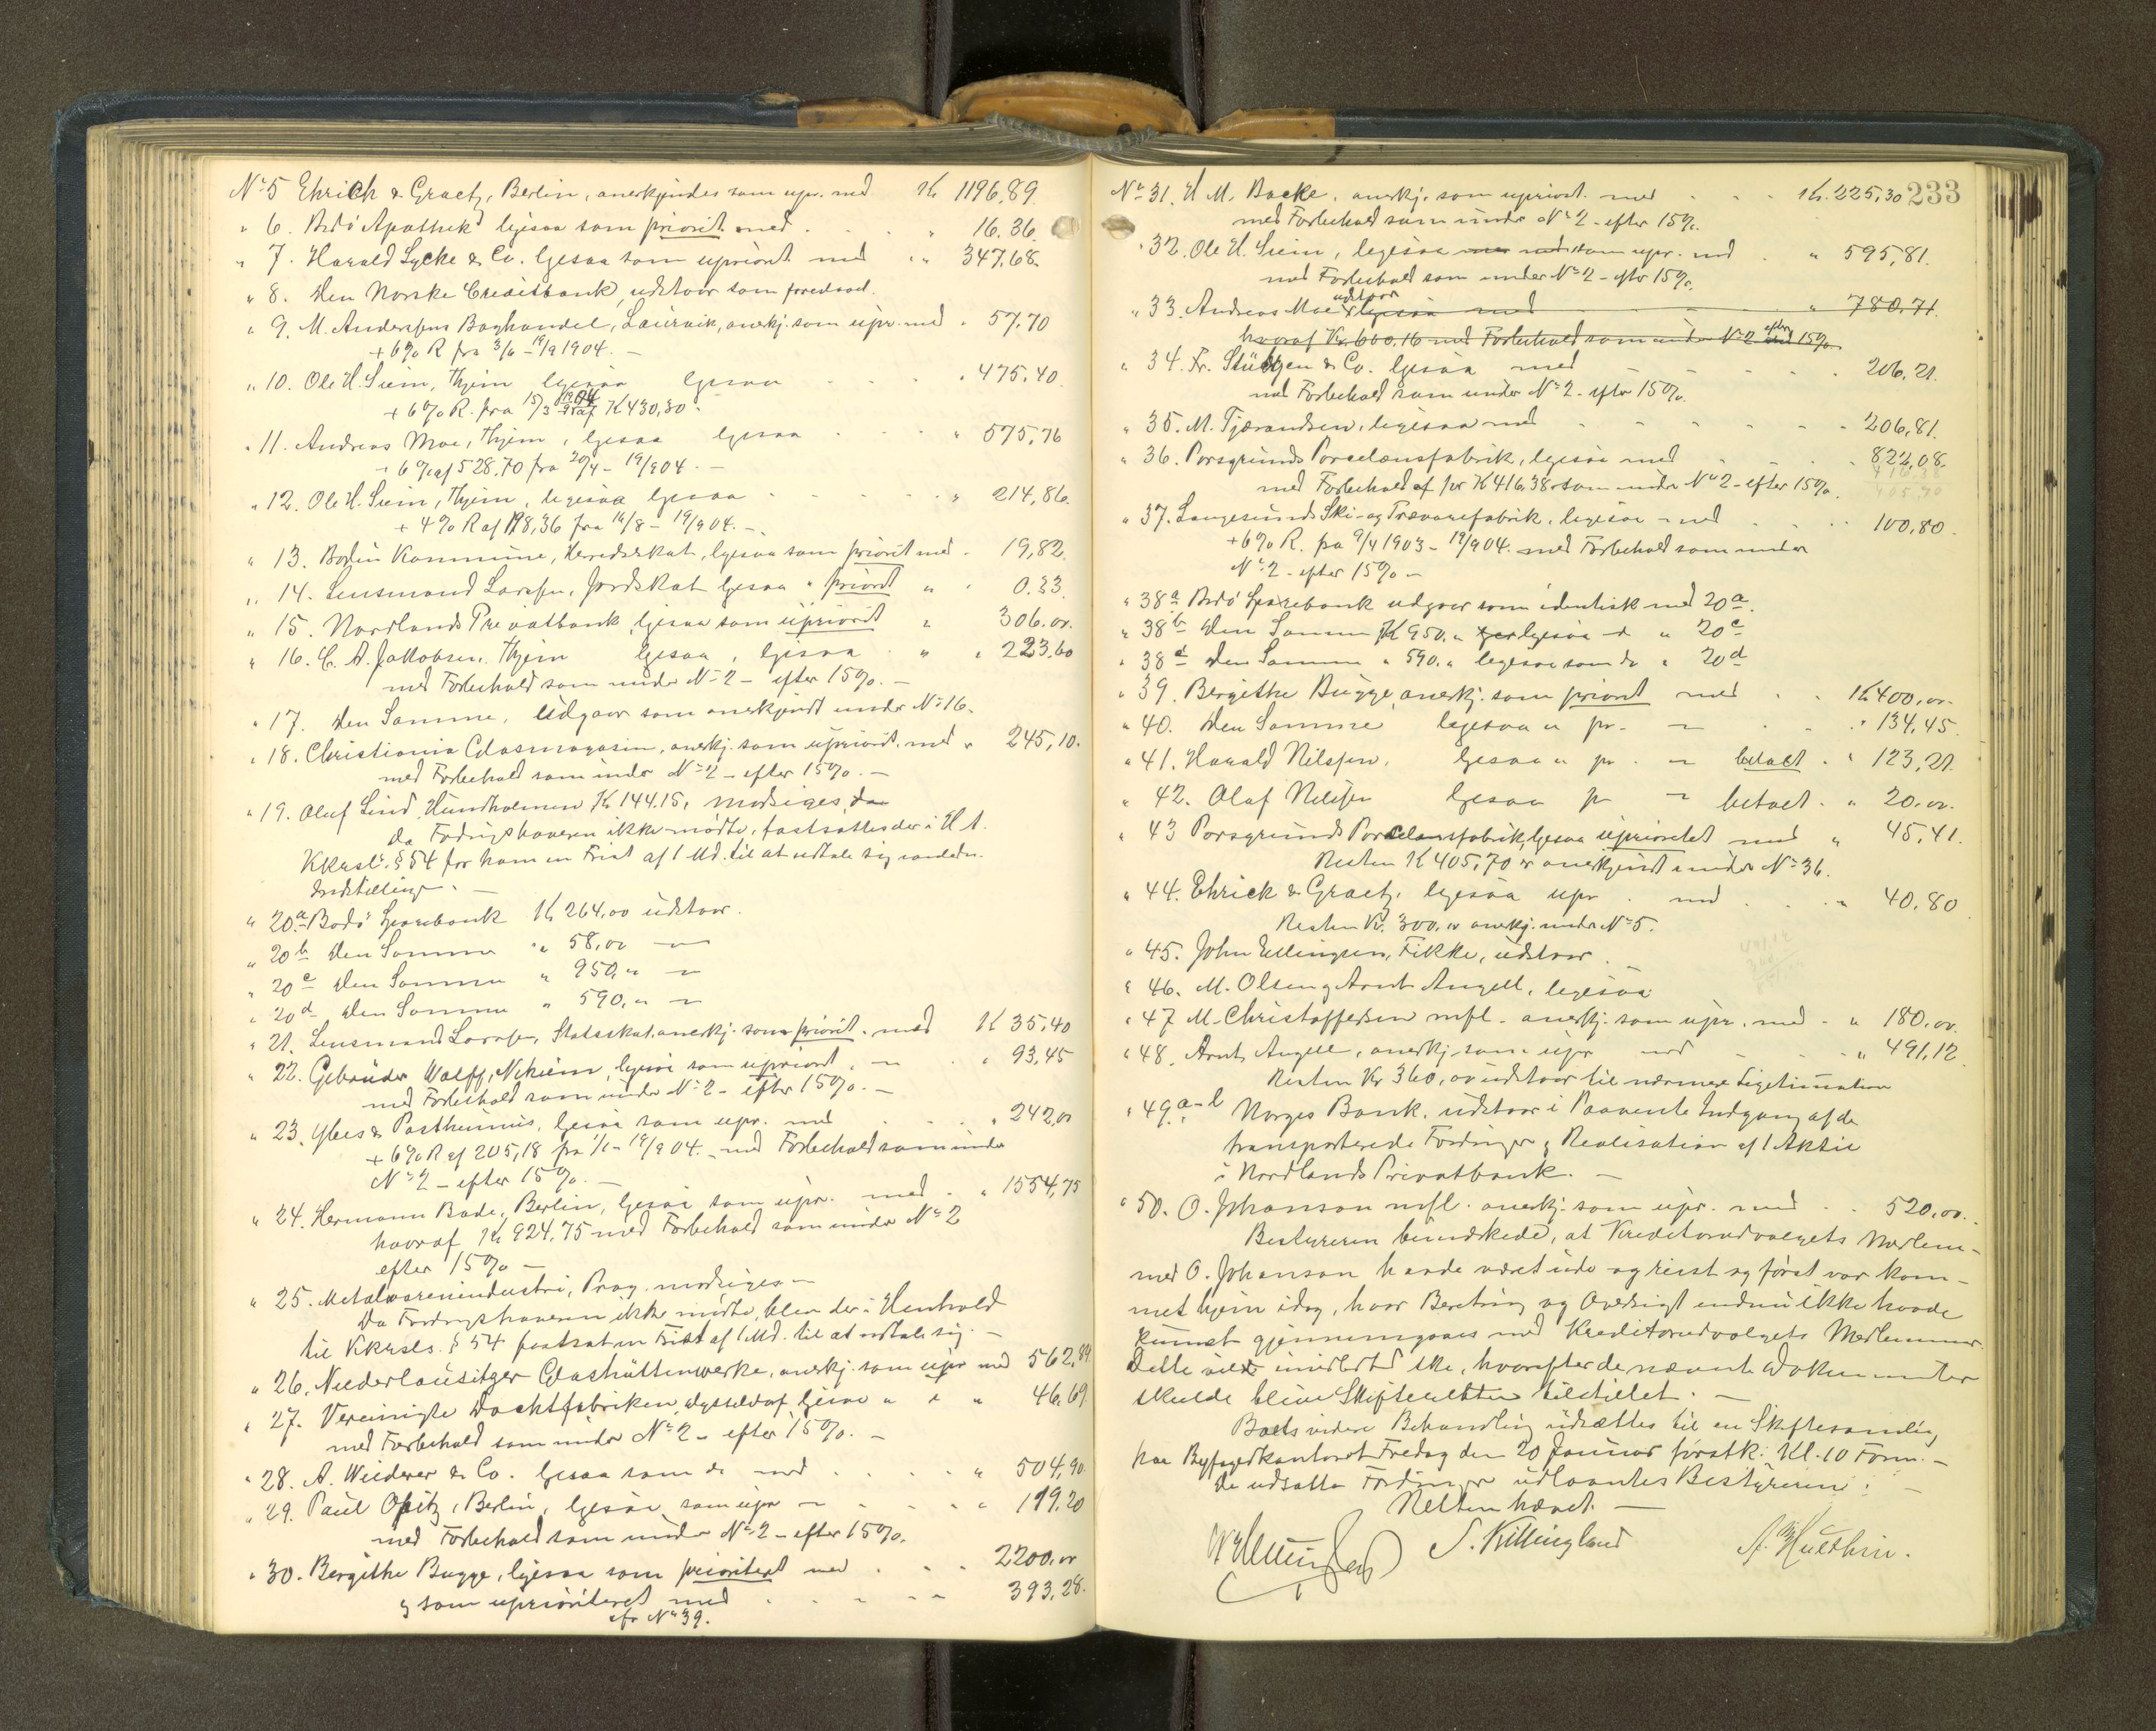 No 5 Ehrich & Graetz, Berlin, anerkjendes som upr. med Kr 1196,89.
" 6. Bodø Apothek ligesaa som priorit. med . . " 16.36
" 7. Harald Lycke & Co. ligesaa som upriorit. med " 347.68.
" 8. Den Norske Creditbank, udstaar som foreslaaet.
" 9. M. Anderssens Boghandel, Laurvik, anerkj. som upr. med " 57,70
+ 6% R fra 3/6 - 19/9 1904. -
" 10. Ole H. Siem, Thjem ligesaa ligesaa . . " 475,40.
+ 6% R. fra 15/3 1904 af K 430,30.
" 11. Andreas Moe, Thjem, ligesaa ligesaa . . " 575,76
- 6% af 528.70 fra 20/4 - 19/9 04. -
" 12. Ole H. Siem, Thjem, ligesaa ligesaa . . . " 214,86.
+ 4% R af 198,36 fra 16/8 - 19/9 04. -
" 13. Bodin Kommune, Herredsskat, ligesaa som priorit med . 19,82.
" 14. Lensmand Larssen, Jordskat ligesaa " priorit " . 0.33.
" 15. Nordlands Privatbank, ligesaa som upriorit " 306.00.
" 16. C. A. Jakobsen. Thjem ligesaa, ligesaa " " 223,60
med Forbehold som under No 2 - efter 15%. -
" 17. Den Samme, Udgaar som anerkjendt under No 16.
" 18. Christiania Glasmagasin, anerkj. som upriorit. med " 245,10.
med Forbehold som under No 2 - efter 15%. -
" 19. Oluf Lind, Hundholmen Kr 144.15, modsiges,
da Fordringshaveren ikke mødte, fastsattes der i H. t.
Kkursl. § 54 for ham en Frist af 1 Md. til at udtale sig
Indstilling. -
" 20a Bodø Sparebank Kr 264,00 udstaar.
" 20b Den Samme " 58,00 -
" 20c Den Samme " 950, " -
" 20d Den Samme " 590, " -
" 21. Lensmand Larssen, Statsskat, anerkj. som priorit. med Kr 35,40
" 22. Gebrüder Wolff, ligesaa som upriorit. - . " 93,45
med Forbehold som under No 2 - efter 15%. -
" 23. & Posthumus, ligesaa som upr. med . . . " 242,00
+ 6% R af 205,18 fra 1/1 - 19/9 04. - med Forbehold som under
No 2 - efter 15%. -
" 24. Hermann Bade, Berlin, ligesaa som upr. med . " 1554,75
hvoraf Kr 924,75 med Forbehold som under No 2
efter 15% -
" 25. Metalwarenindustri, Prag. modsiges -
Da Fordringshaveren ikke mødte, blev der i Henhold
til Kkursls. § 54 fastsat en Frist af 1 Md. til at udtale sig. -
" 26. Niederlausitzer Glashüttenwerke, anerkj. som upr med 562,89
" 27. Vereinigte Dochtfabriken, Dysseldorf, ligesaa " " " 46.69
med Forbehold som under No 2 - efter 15%. -
" 28. A. Wiederer & Co. ligesaa som do med . . . " 504,90.
" 29. Paul Opitz, Berlin, ligesaa som upr - - - " 119.20
med Forbehold som under No 2 - efter 15%.
" 30. Bergithe Bugge, ligesaa som prioriteret med . . . 2200,00
og som uprioriteret med . . . 393,28.
cfr No 39.
233
No 31. H. M. Backe. anerkj. som upriorit. med . . . Kr. 225,30
med Forbehold som under No 2 - efter 15%.
" 32. Ole H. Siem, ligesaa som upr. med . " 595,81.
med Forbehold som under No 2 - efter 15%.
" 33. Andreas Moe udstaar ligesaa med " 780,71.
hvoraf Kr. 600.16 med Forbehold som under No 2 efter 15%.
" 34. Fr. Stübgen & Co. ligesaa med . . . 206,21.
med Forbehold som under No 2 - efter 15%.
" 35. M. Tjærandsen, ligesaa med . . . . 206,81.
" 36. Porsgrunds Porcelænsfabrik, ligesaa med . . 822,08.
med Forbehold af for K 416,38 som under No 2 - efter 15%.
416,38
405,70
" 37. Langesunds Ski- og Trævarefabrik, ligesaa - med . . . 100,80.
+ 6% R. fra 9/4 1903 - 19/9 04. med Forbehold som under
No 2 - efter 15% -
" 38a Bodø Sparebank udgaar som identisk med 20a.
" 38b Den Samme Kr 950. " ligesaa - " 20c
" 38d Den Samme " 590. " ligesaa som do " 20d
" 39. Bergithe Bugge, anerkj. som priorit med . . Kr 400,00.
" 40. Den Samme ligesaa " pr. - . . " 134,45.
" 41. Harald Nilssen, ligesaa " pr. - betalt . " 123,21.
" 42. Olaf Nilssen ligesaa pr - betalt . " 20.00.
" 43 Porsgrunds Porcelænsfabrik, ligesaa uprioritet med " 45,41.
Resten K 405,70 er anerkjendt under No 36.
" 44. Ehrick & Graetz, ligesaa upr . med . . . " 40,80
Resten Kr. 300, er anerkj. under No 5.
" 45. John Ellingsen, Fikke, udstaar.
" 46. M. Olsen og Arnt Angell, ligesaa
" 47 M. Christoffersen mfl. anerkj. som upr. med - " 180,00.
" 48. Arnt Angell, anerkj. som upr med - . . " 491,12.
Resten Kr 360,00 udstaar til nærmere Legitimation
" 49a-l Norges Bank. udstaar i Paavente Indgang af de
transporterede Fordringer og Realisation af 1 Aktie
i Nordlands Privatbank. -
" 50. O. Johanson mfl. anerkj. som upr. med . . 520,00.
Bestyreren bemærkede, at Kreditorudvalgets Medlem-
med O. Johanson havde været ude og reist og først var kom-
met hjem idag, hvor Beretning og Oversigt endnu ikke havde
kunnet gjennemgaaes med Kreditorudvalgets Medlemmer.
Dette vilde imidlertid ske, hvorefter de nævnte Dokumenter
skulde blive Skifteretten tilstillet. -
Boets videre Behandling udsættes til en Skiftesamling
paa Byfogedkontoret Fredag den 20 Januar førstk. Kl. 10 Form. -
De udsatte Fordringer udlaantes Bestyreren. -
Retten hævet. -
S. Killingland